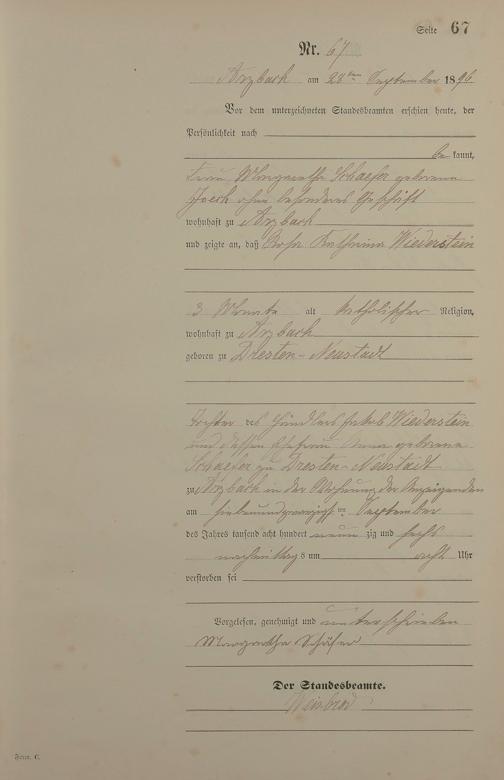 Seite 67
Nr. 67
Arzbach am 28ten September 1896
Vor dem unterzeichneten Standesbeamten erschien heute, der
Persönlichkeit nach
be kannt,
Frau Margaretha Schaefer geborene
Joerk ohne besonderes Geschäft
wohnhaft zu Arzbach
und zeigte an, daß Rosa Katharina Wiederstein
3 Monate alt katholischer Religion,
wohnhaft zu Arzbach
geboren zu Dresten-Neustadt
Tochter des Händlers Jakob Wiederstein
und dessen Ehefrau Anna geborene
Schaefer zu Dresten-Neustadt
zu Arzbach in der Wohnung der Anzeigenden
am siebenundzwanzigsten September
des Jahres tausend acht hundert neun zig und sechs
nachmittags um acht Uhr
verstorben sei
Vorgelesen, genehmigt und unterschrieben
Margretha Schäfer
Der Standesbeamte.
Weisbrod
Form. C.